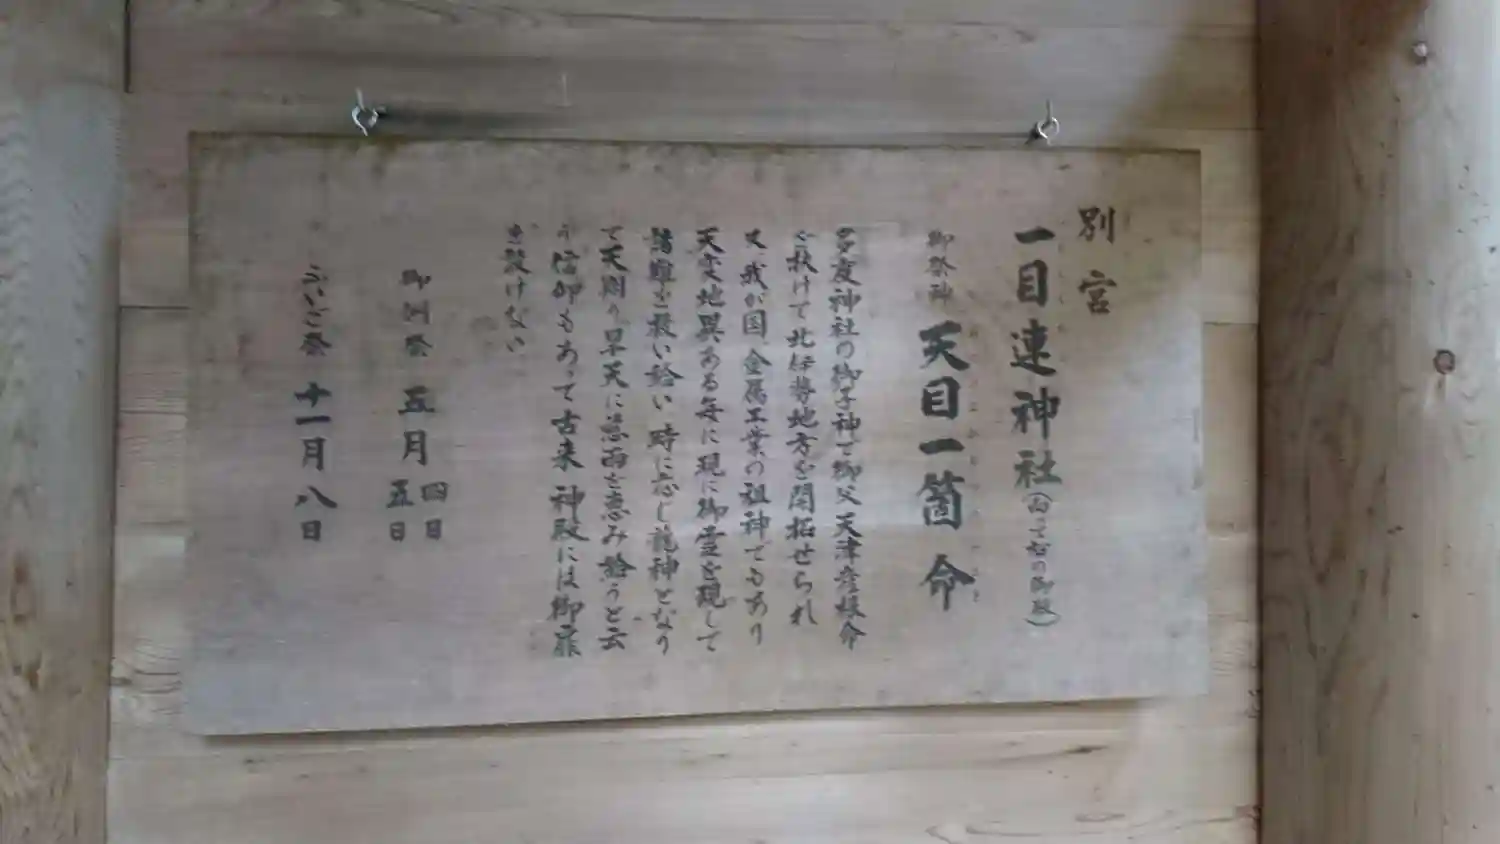 別宮
一目連神社(向って右の御殿)
御祭神 天目一箇命
多度神社の御子神で御父天津彦根命
を扶けて北伊勢地方を開拓せられ
又、我が国、金属工業の祖神でもあり
天変地異ある毎に現に御霊を現して
諸難を救い給い時に応じ龍神となり
て天翔り旱天に慈雨を恵み給うと云
う信仰もあって古来神殿には御扉
を設けない
御例祭 五月 四日 五日
ふいご祭 十一月八日